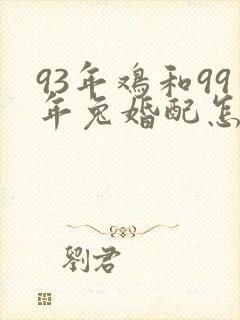 93年鸡和99
年兔婚配怎
劉君